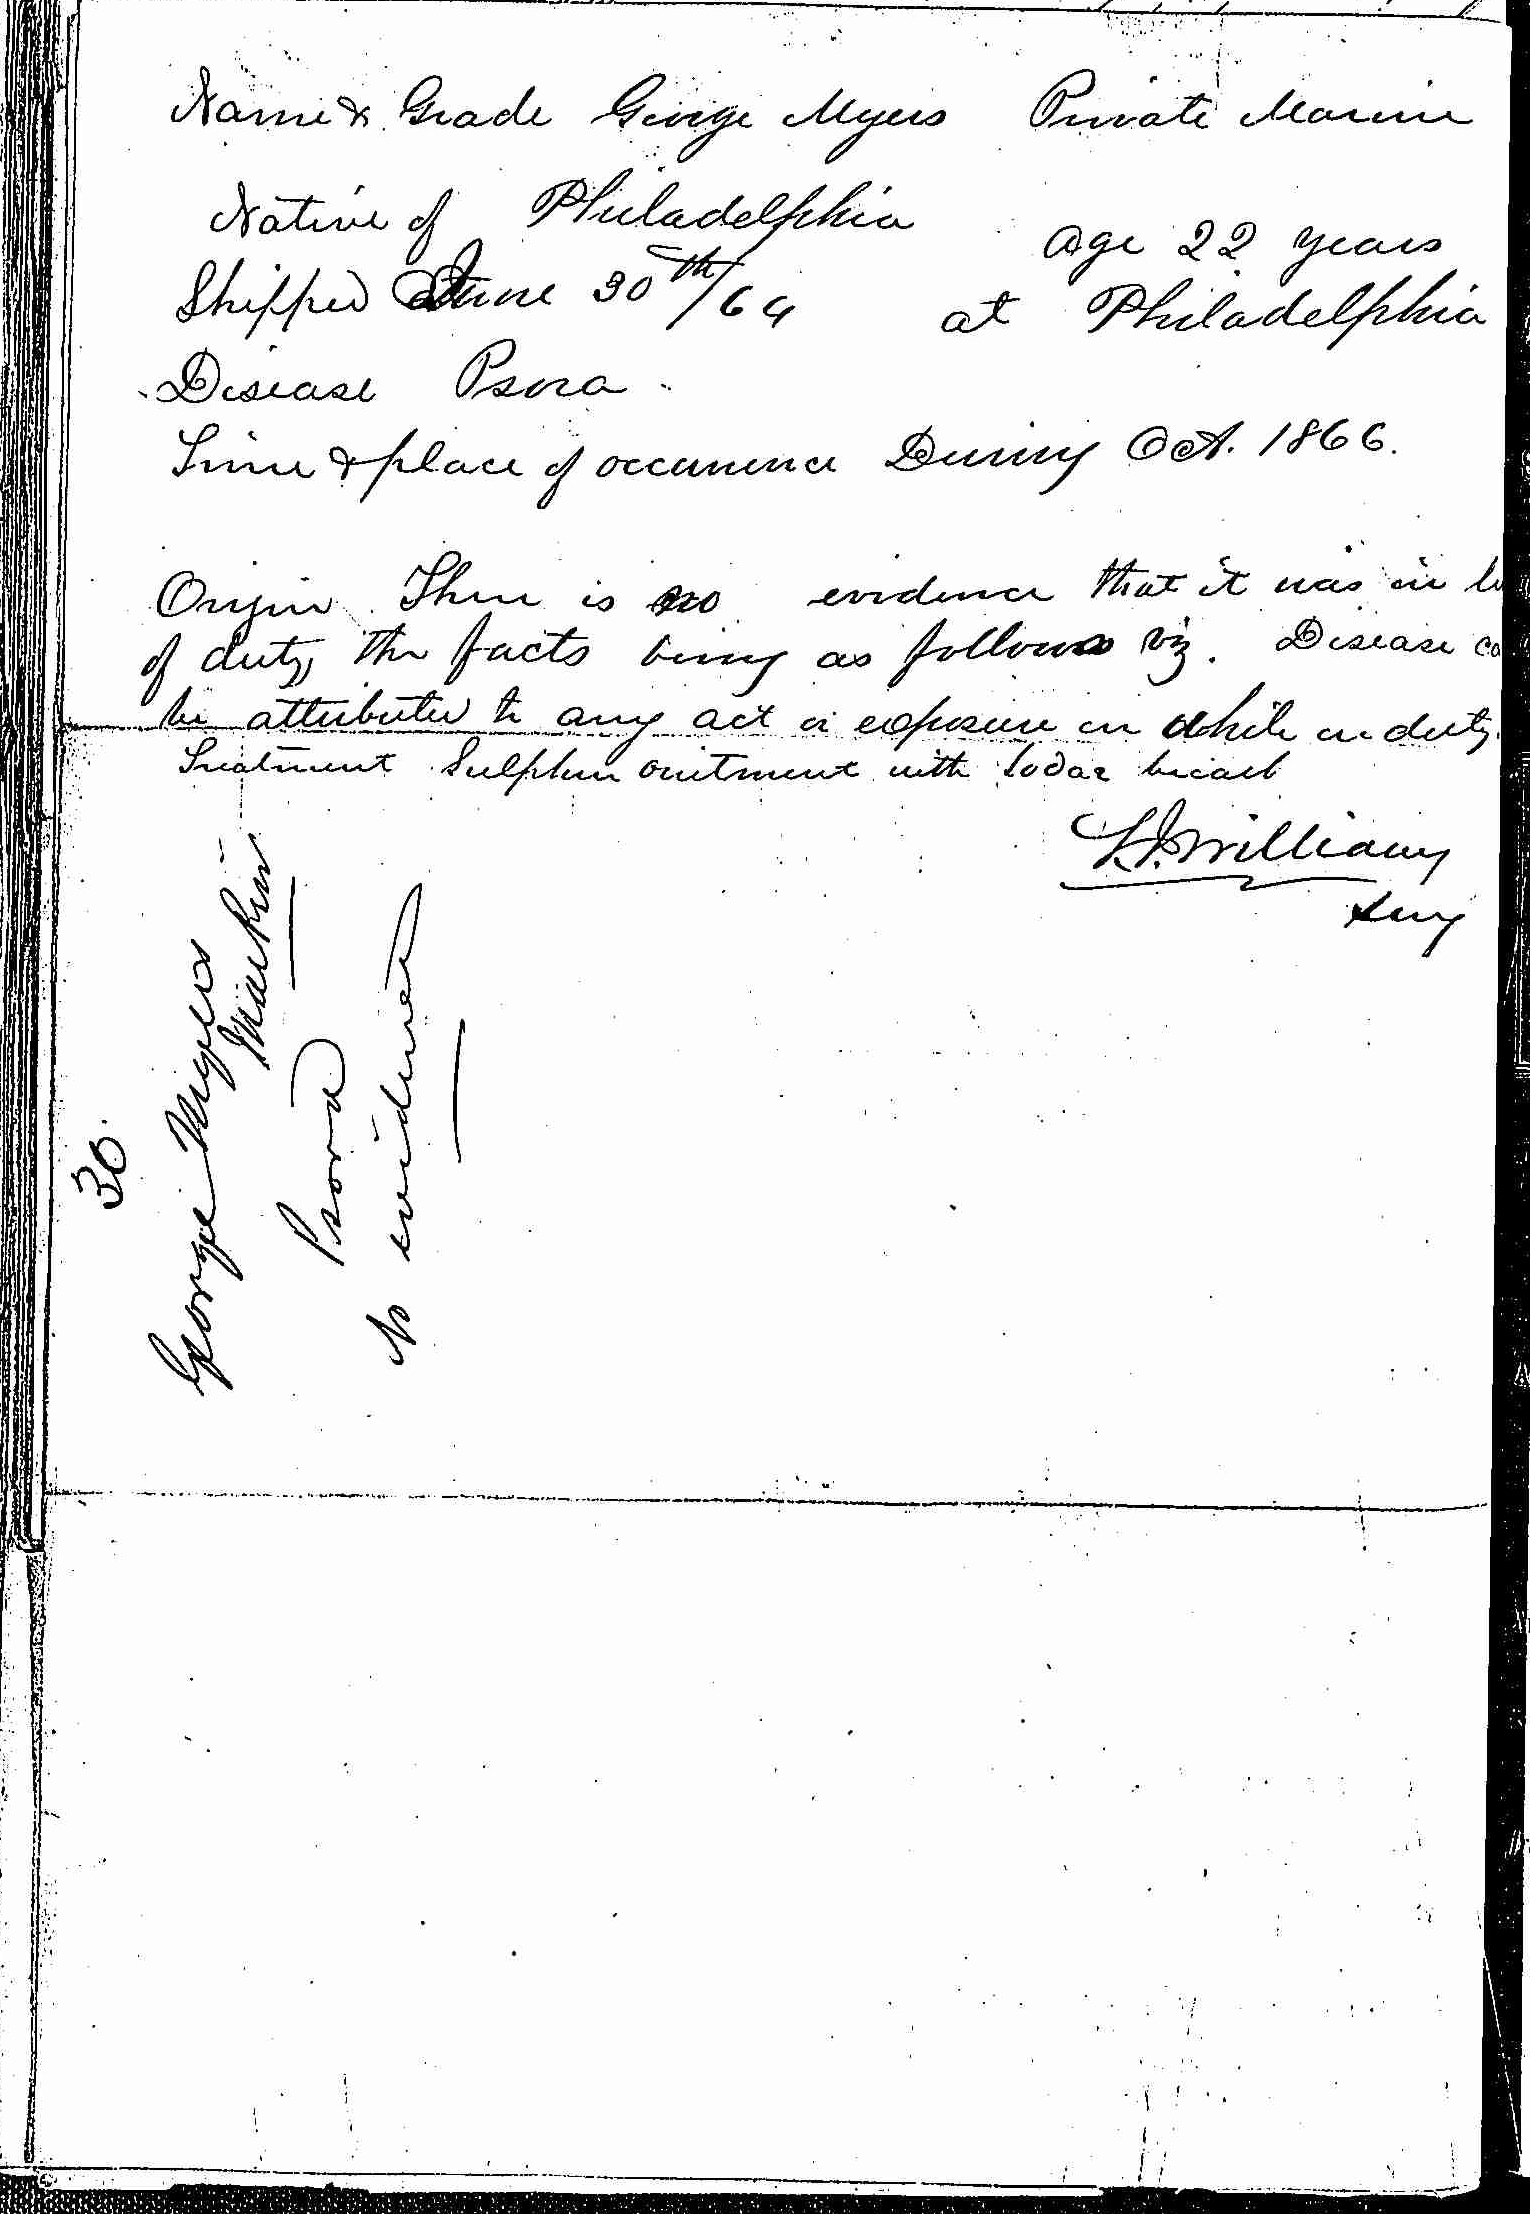 Name & Grade George Myers Private Marine
Native of Philadelphia age 22 years
Shipped June 30th/64 at Philadelphia
Disease Psora
Time & place of occurrence During Oct. 1866.
Origin There is no evidence that it was in
of duty, the facts being as follows viz. Disease
be attributed to any act or exposure in while on duty.
Treatment Sulphur ointment with Sodae bicarb
Williams
Surg
30.
George Myers
Psora
No evidence